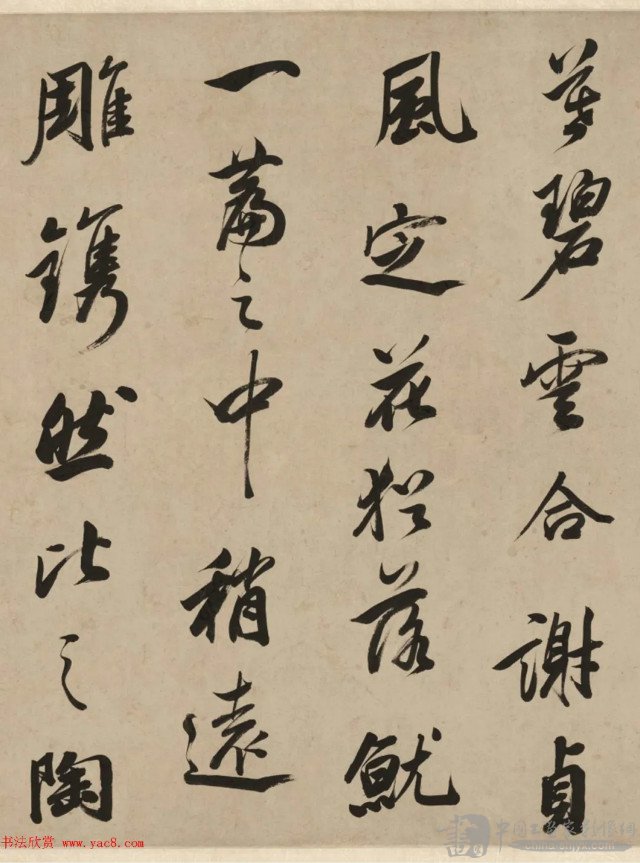 碧雲合謝貞
風定花猶落就
一篇之中稍遠
雕鐫然比之陶
书法欣赏:www.yac8.com